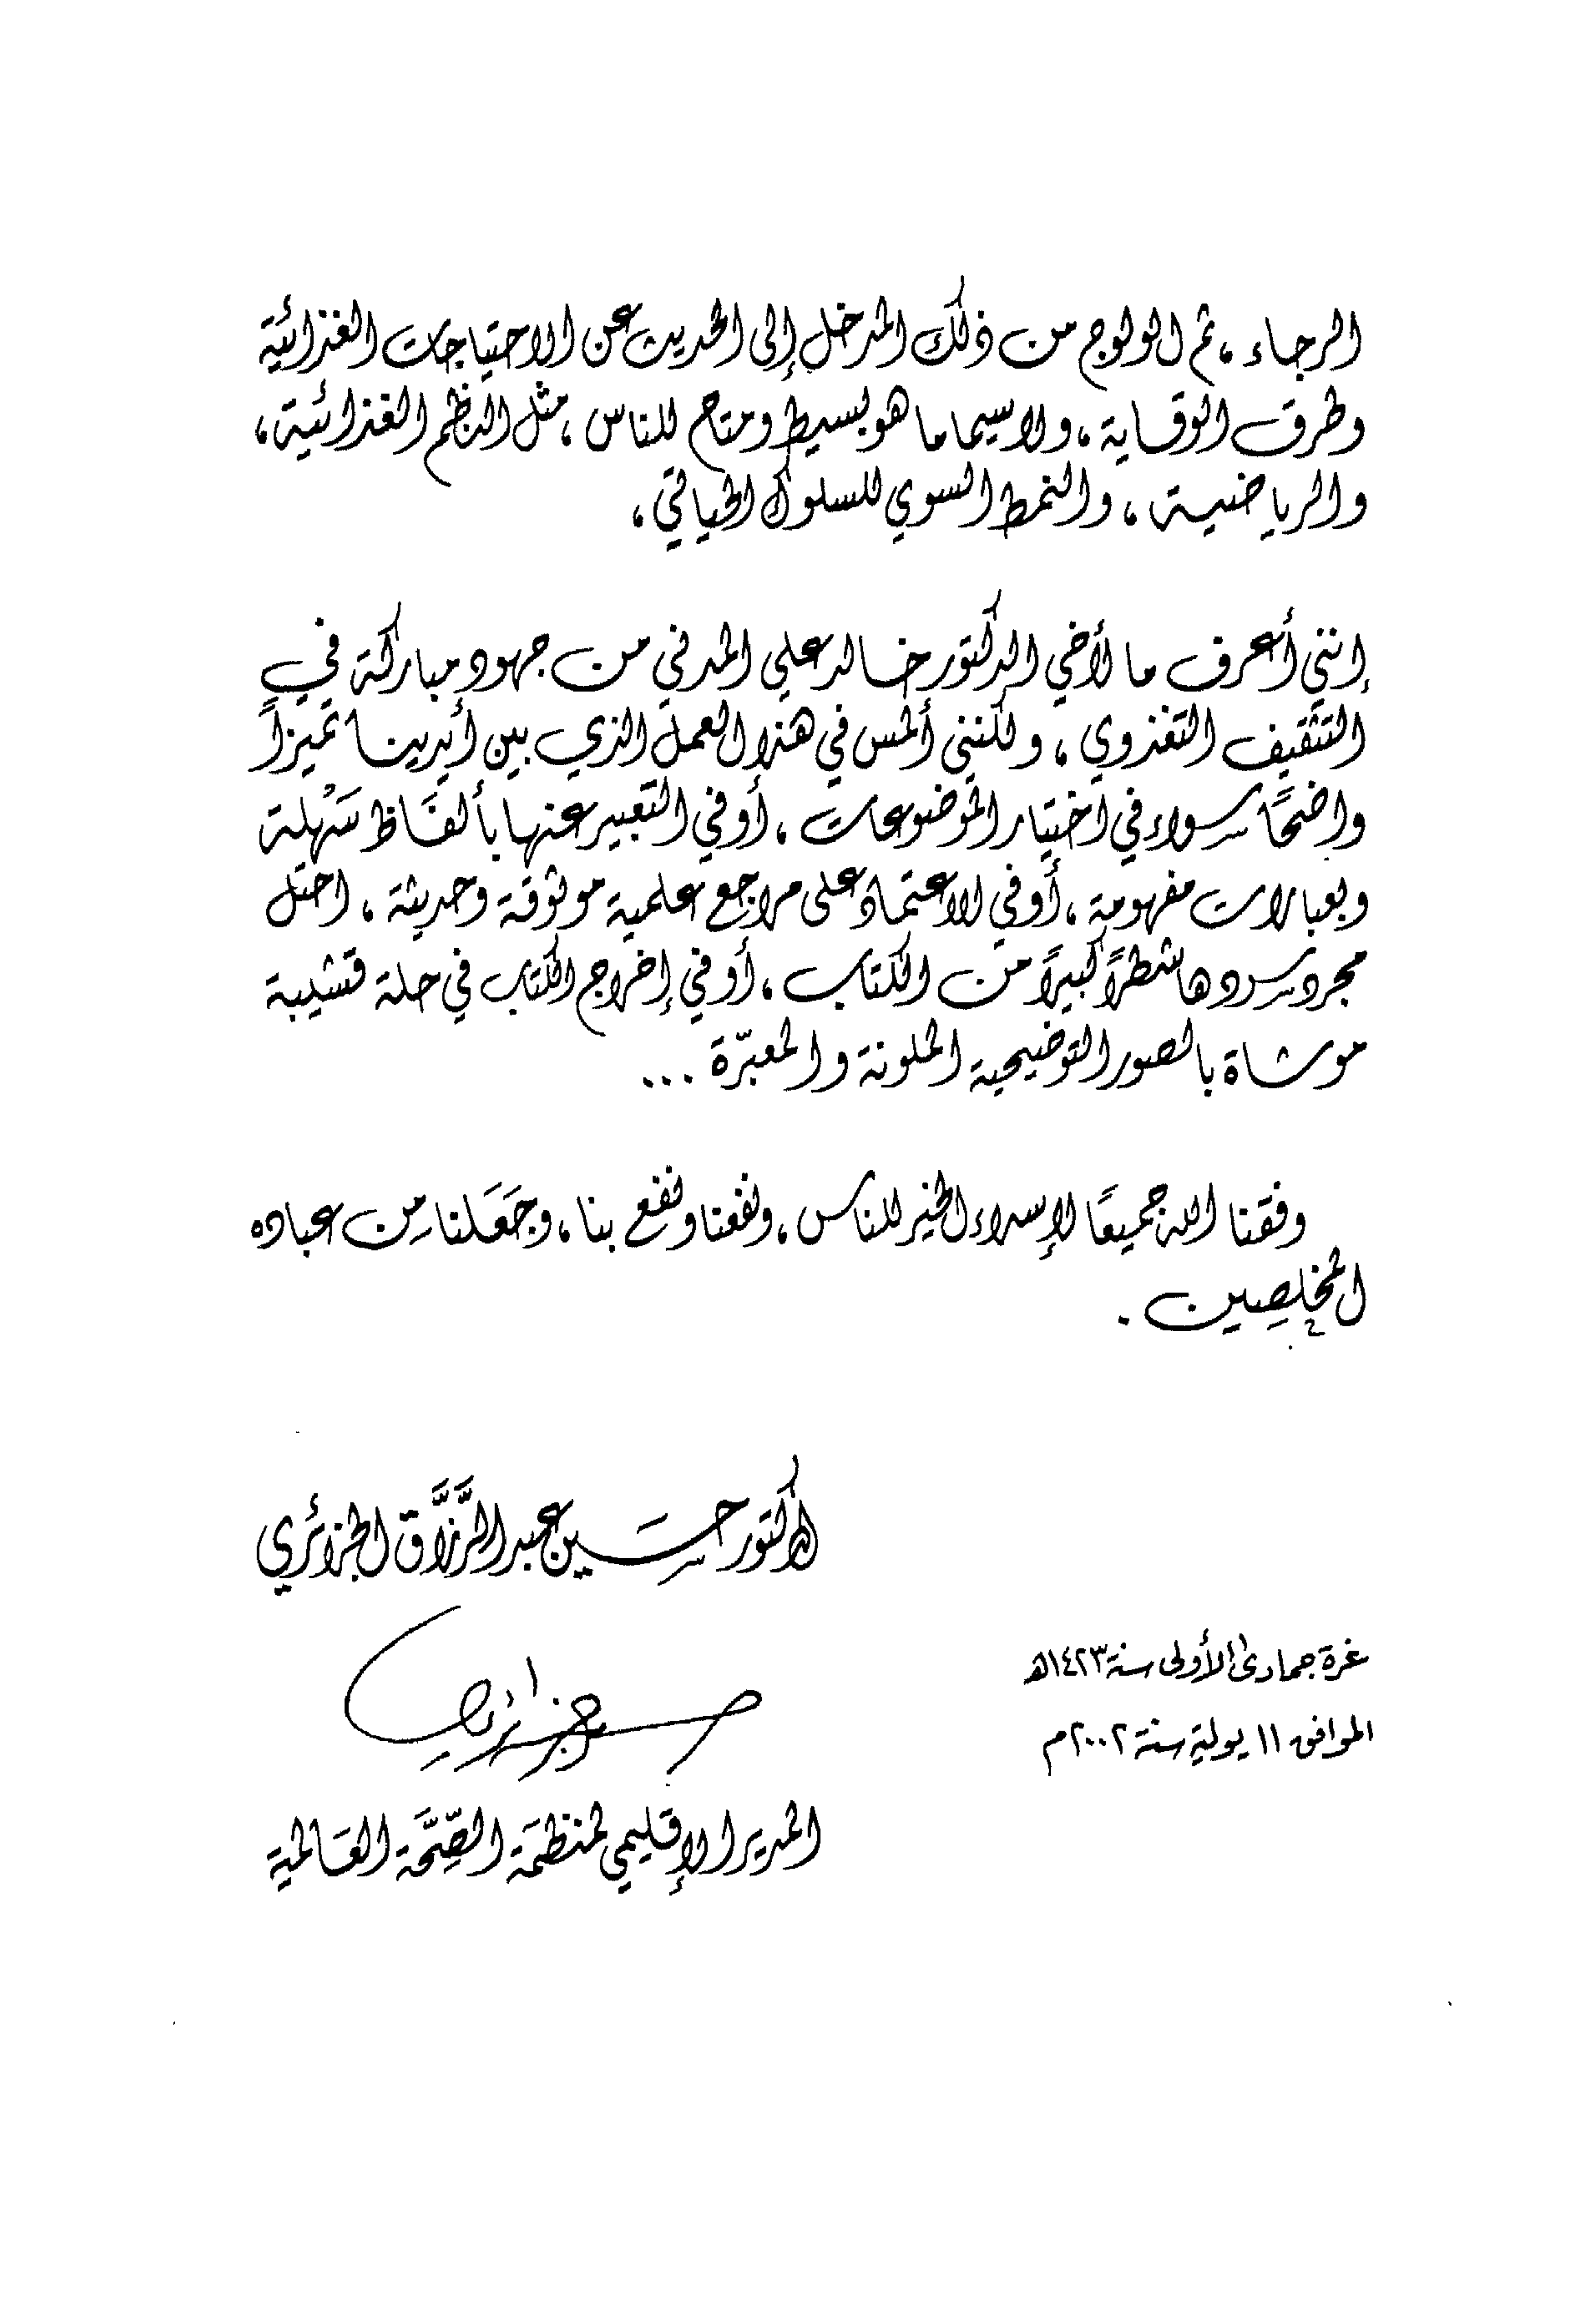 الرجاء، ثم الولوج من ذلك المدخل إلى الحديث عن الاحتياجات الغذائية
وطرق الوقاية، ولاسيما ما هو بسيط ومتاح للناس، مثل النظم الغذائية،
والرياضية، والنمط السوي للسلوك الحياتي،
إنني أعرف ما لأخي الدكتور خالد علي المدني من جهود مباركة في
التثقيف التغذوي، ولكنني ألمس في هذا العمل الذي بين أيدينا تميزاً
واضحًا سواء في اختيار الموضوعات، أو في التعبير عنها بألفَاظ سَهْلة
وبعبارات مفهومة، أو في الاعتماد على مراجع علمية موثوقة وحديثة، احتل
مجرد سردها شطرًا كبيرًا من الكتاب، أو في إخراج الكتاب في حلة قشيبة
موشاة بالصور التوضيحية الملونة والمعبّرة ...
وفقنا الله جميعًا لإسداء الخير للناس، ونفعنا ونفع بنا، وجَعَلنا مِن عباده
المخلِصِين.
الدكتور حسَين عبد الرَّزَّاق الجزائري
غرة جمادى الأولى سنة ١٤٢٣هـ
الموافق ١١ يولية سنة ٢٠٠٢م
المدير الإقليمي لمنظمَة الصِّحَّة العَالمية